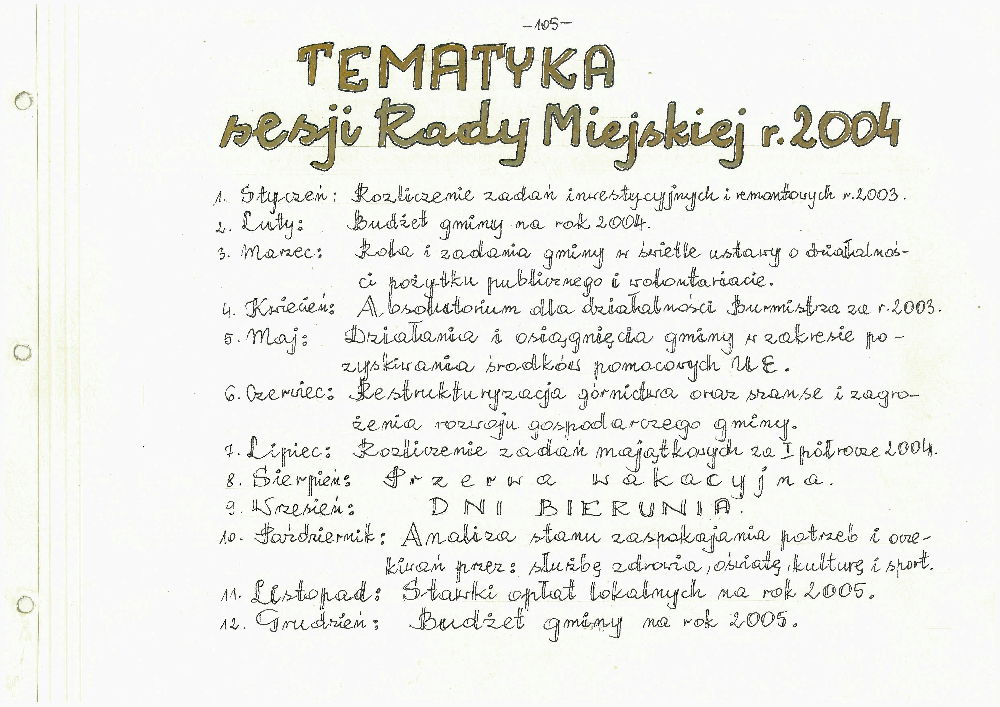 -105-
TEMATYKA
sesji Rady Miejskiej r. 2004
1. Styczeń: Rozliczenie zadań inwestycyjnych i remontowych r. 2003.
2. Luty: Budżet gminy na rok 2004.
3. Marzec: Rola i zadania gminy w świetle ustawy o działalnoś-
ci pożytku publicznego i wolontariacie.
4. Kwiecień: Absolutorium dla działalności Burmistrza za r. 2003.
5. Maj: Działania i osiągnięcia gminy w zakresie po-
zyskiwania środków pomocowych UE.
6. Czerwiec: Restrukturyzacja górnictwa oraz szanse i zagro-
żenia rozwoju gospodarczego gminy.
7. Lipiec: Rozliczenie zadań majątkowych za I półrocze 2004r.
8. Sierpień: Przerwa wakacyjna.
9. Wrzesień: DNI BIERUNIA.
10. Październik: Analiza stanu zaspokajania potrzeb i ocze-
kiwań przez: służbę zdrowia, oświatę, kulturę i sport.
11. Listopad: Stawki opłat lokalnych na rok 2005.
12. Grudzień: Budżet gminy na rok 2005.